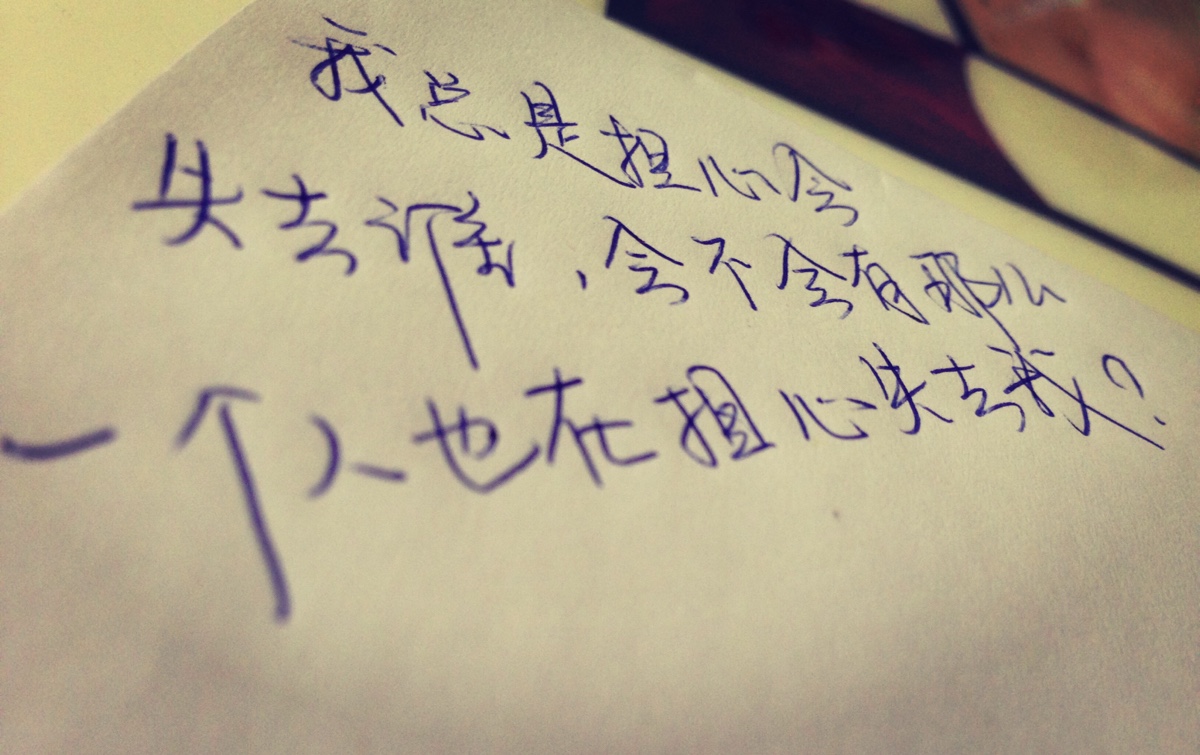 我总是担心会
失去谁，会不会有那么
一个人也在担心失去我？